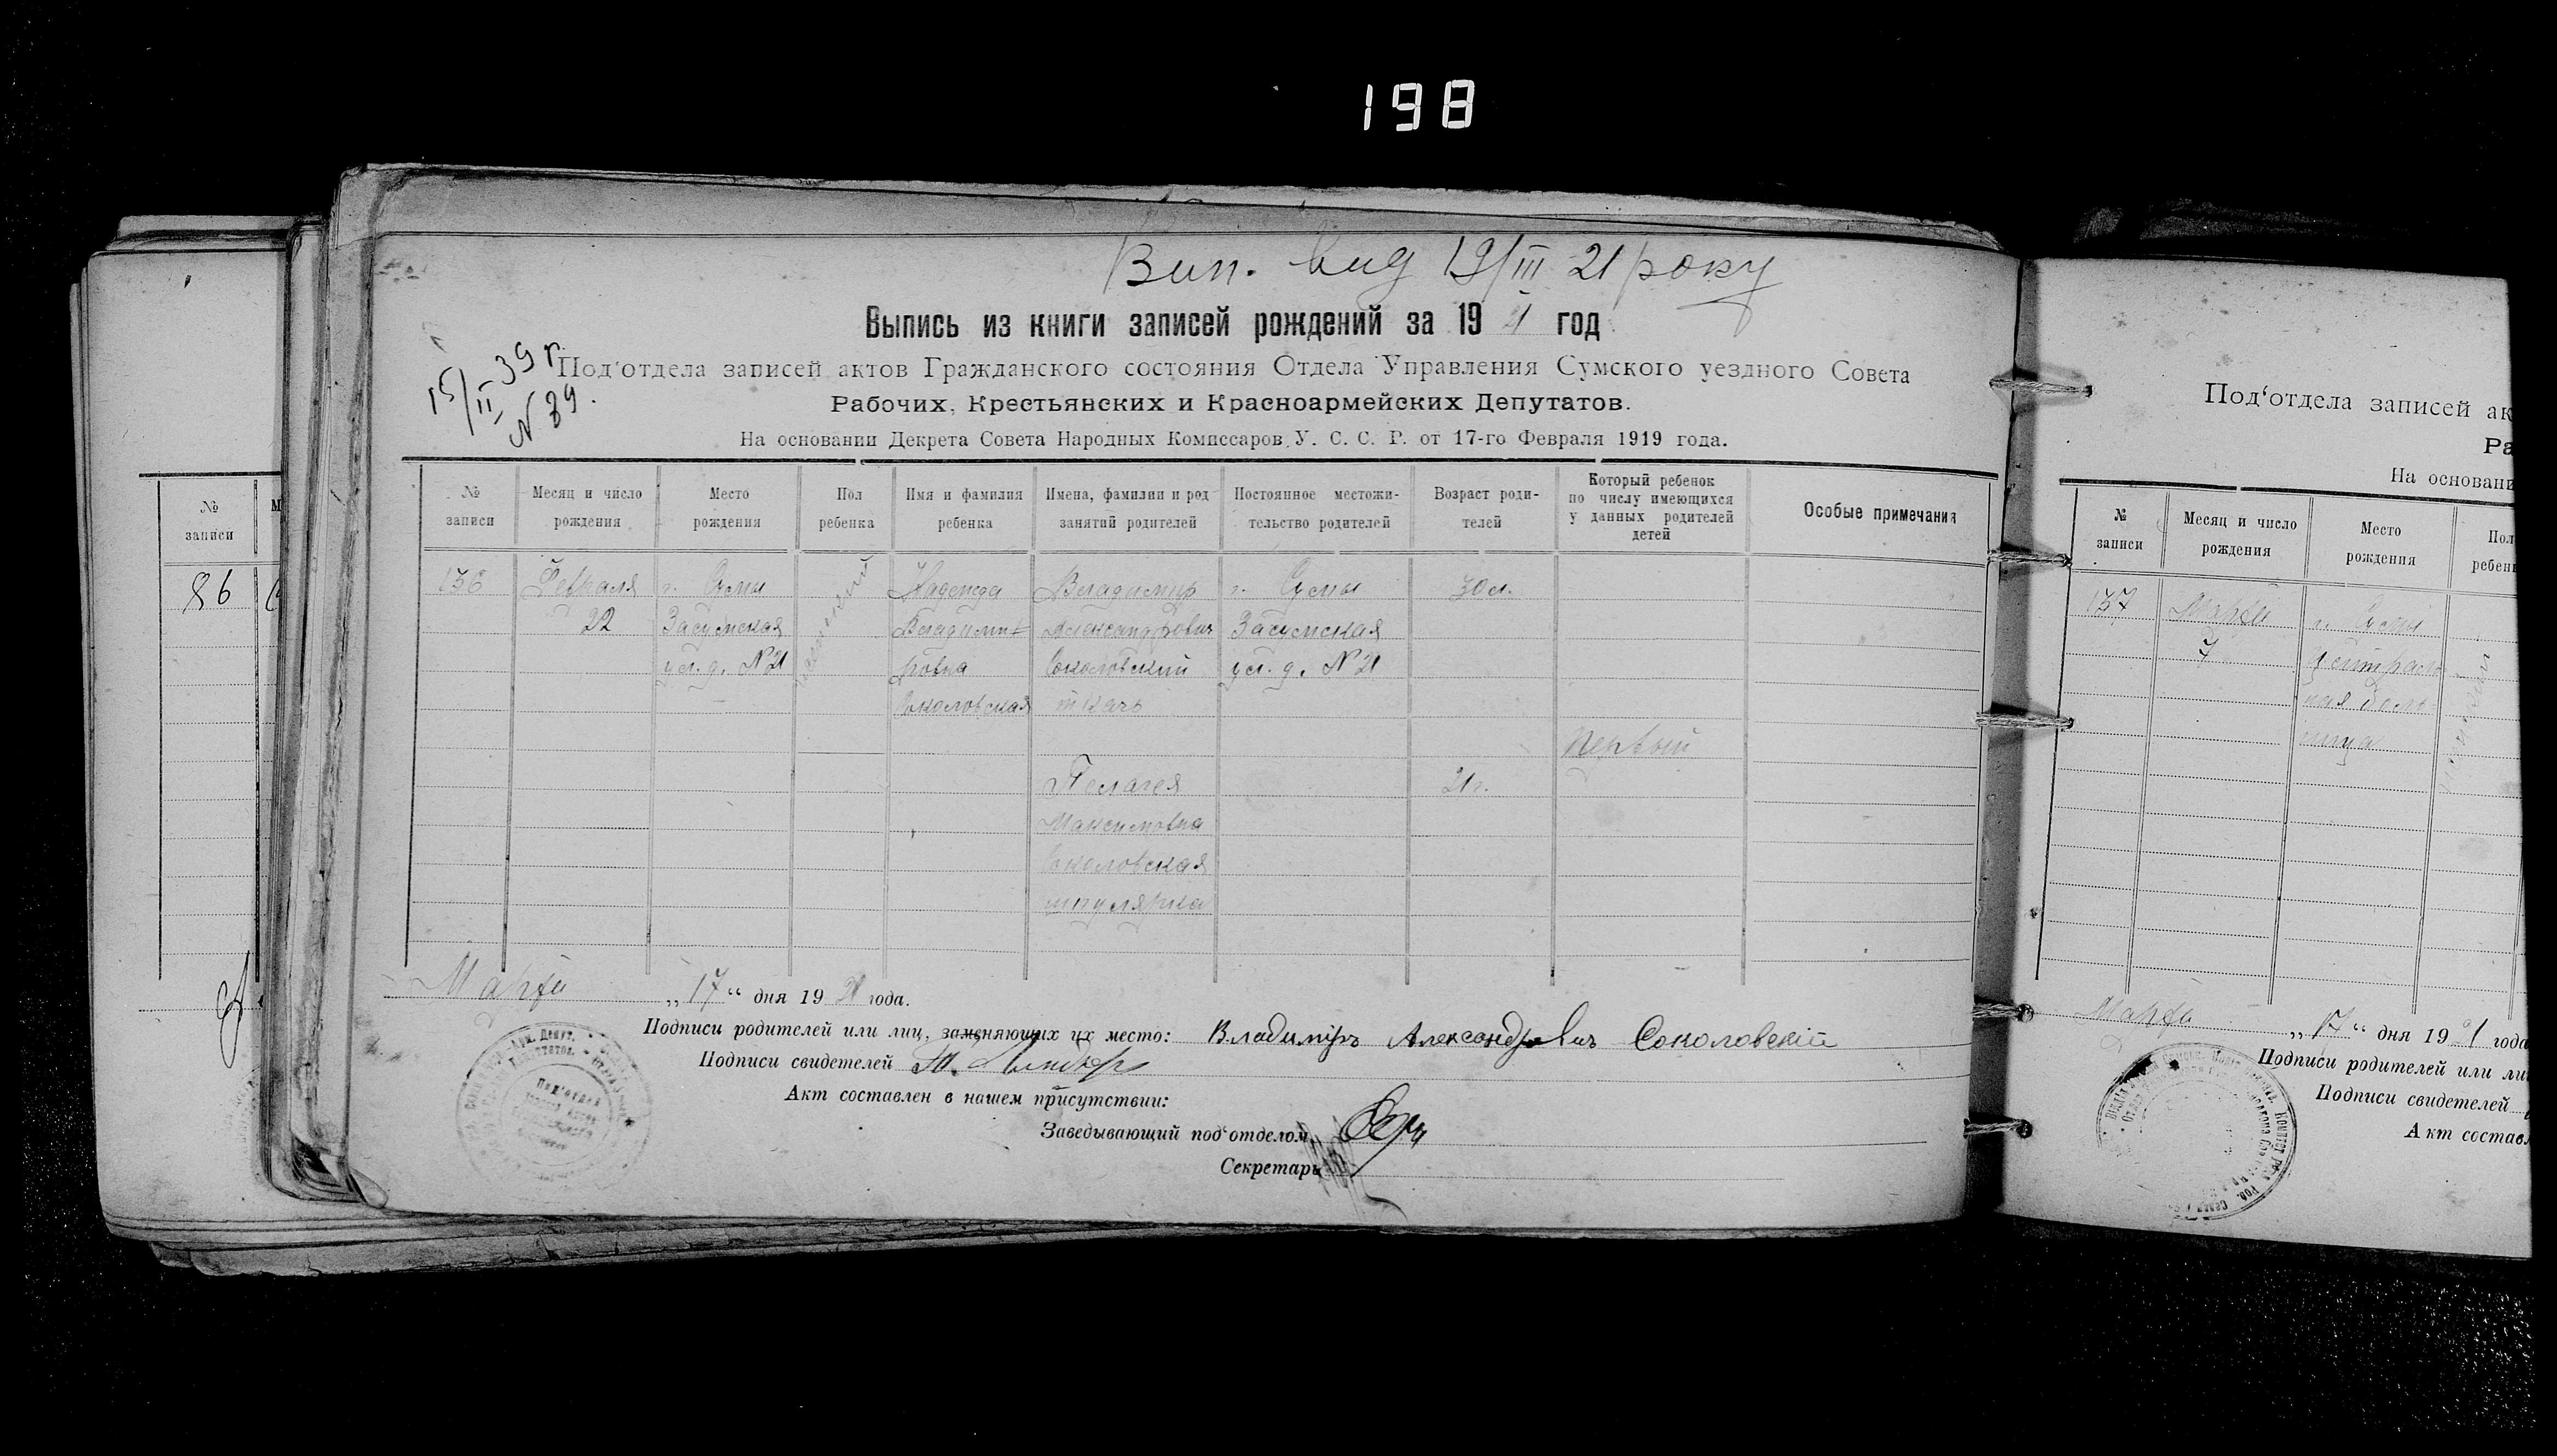 198
Вип. вид 19/III 21 року
Выпись из книги записей рождений за 1921 год
15/II 39 г.
N 39.
Под'отдела записей актов Гражданского состояния Отдела Управления Сумского уездного Совета
Рабочих, Крестьянских и Красноармейских Депутатов.
На основании Декрета Совета Народных Комиссаров У. С. С. Р. от 17-го Февраля 1919 года.
№ записи
Месяц и число рождения
Место рождения
Пол ребенка
Имя и фамилия ребенка
Имена, фамилии и род занятий родителей
Постоянное местожительство родителей
Возраст родителей
Который ребенок по числу имеющихся у данных родителей детей
Особые примечания
136
Февраля
22
г. Сумы
Засумская
ул. д. N 21
женский
Надежда
Владими=
ровна
Соколовская
Владимир
Александрович
Соколовский
ткачь
Пелагея
Максимовна
Соколовская
шпулярка
г. Сумы
Засумская
ул. д. N 21
30 л.
21 г.
Первый
Марта „17“ дня 1921 года.
Подписи родителей или лиц, заменяющих их место: Владимиръ Александровичъ Соколовскій
Подписи свидетелей
Акт составлен в нашем присутствии:
Заведывающий под'отделом
Секретарь
№
записи
М
86
Под'отдела записей ак
Ра
На основани
№ записи
Месяц и число рождения
Место рождения
Пол
ребен
137
Марта
7
г. Сумы
Централь
ная боль=
ница
Марта „17“ дня 1921 года
Подписи родителей или ли
Подписи свидетелей
Акт составл